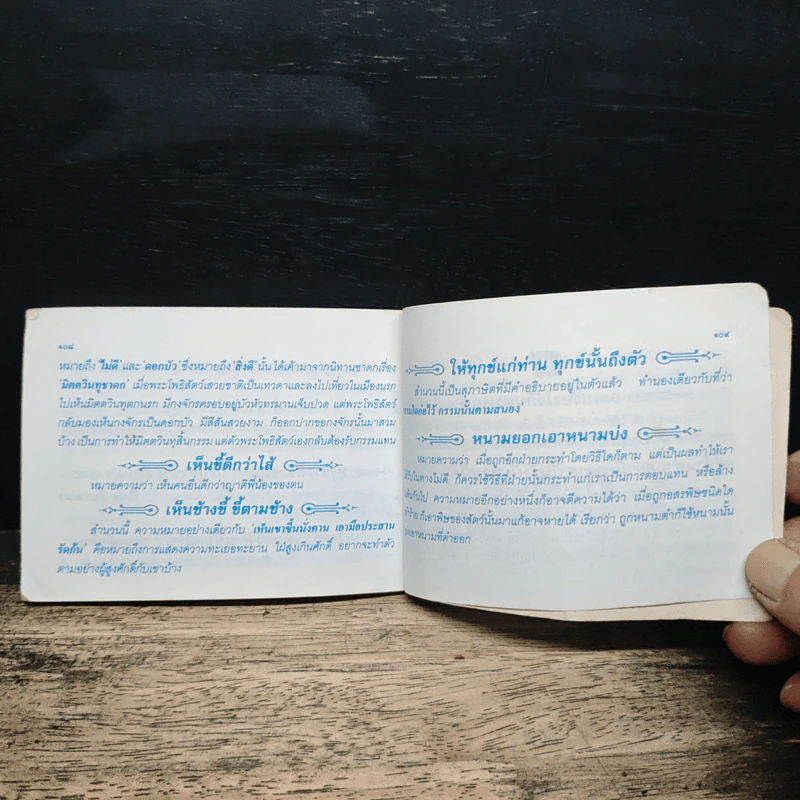 ๑๐๘
หมายถึง 'ไม่ดี' และ 'ดอกบัว' ซึ่งหมายถึง 'สิ่งดี' นั้น ได้เค้ามาจากนิทานชาดกเรื่อง
'มิตตวินทุชาดก' เมื่อพระโพธิสัตว์เสวยชาติเป็นเทวดาและลงไปเที่ยวในเมืองนรก
ไปเห็นมิตตวินทุตกนรก มีกงจักรครอบอยู่บัวหัวทรมานเจ็บปวด แต่พระโพธิสัตว์
กลับมองเห็นกงจักรเป็นดอกบัว มีสีสันสวยงาม ก็ออกปากขอกงจักรนั้นมาสวม
บ้าง เป็นการทำให้มิตตวินทุสิ้นกรรม แต่ตัวพระโพธิสัตว์เองกลับต้องรับกรรมแทน
เห็นขี้ดีกว่าไส้
หมายความว่า เห็นคนอื่นดีกว่าญาติพี่น้องของตน
เห็นช้างขี้ ขี้ตามช้าง
สำนวนนี้ ความหมายอย่างเดียวกับ 'เห็นเขาขึ้นนั่งคาน เอามือประสาน
รัดก้น' คือหมายถึงการแสดงความทะเยอทะยาน ใฝ่สูงเกินศักดิ์ อยากจะทำตัว
ตามอย่างผู้สูงศักดิ์กับเขาบ้าง
๑๐๙
ให้ทุกข์แก่ท่าน ทุกข์นั้นถึงตัว
สำนวนนี้เป็นสุภาษิตที่มีคำอธิบายอยู่ในตัวแล้ว ทำนองเดียวกับที่ว่า
กรรมใดก่อไว้ กรรมนั้นตามสนอง'
หนามยอกเอาหนามบ่ง
หมายความว่า เมื่อถูกอีกฝ่ายกระทำโดยวิธีใดก็ตาม แต่เป็นผลทำให้เรา
ได้รับในทางไม่ดี ก็ควรใช้วิธีที่ฝ่ายนั้นกระทำแก่เราเป็นการตอบแทน หรือล้าง
แค้นกันไป ความหมายอีกอย่างหนึ่งก็อาจตีความได้ว่า เมื่อถูกอสรพิษชนิดใด
ทำร้าย ก็เอาพิษของสัตว์นั้นมาแก้อาจหายได้ เรียกว่า ถูกหนามตำก็ใช้หนามนั้น
บ่งเอาหนามที่ตำออก